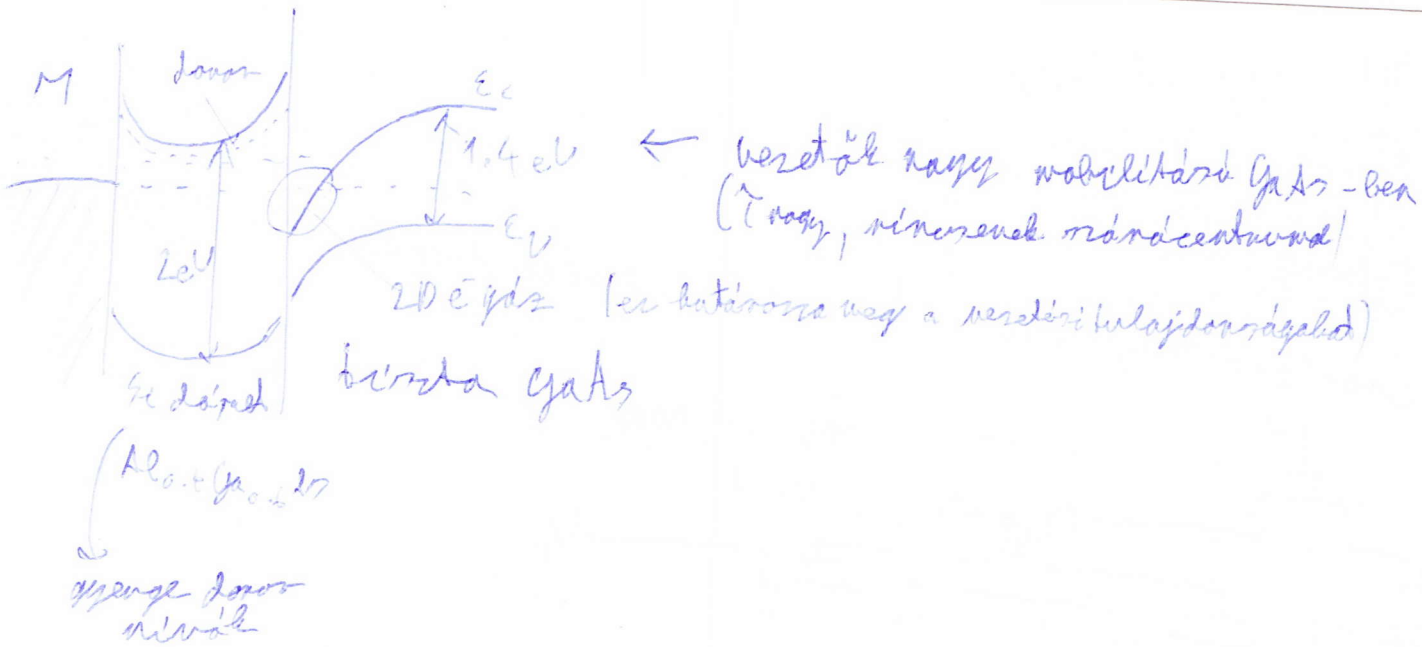 M
donor
εc
1.4 eV
← vezetők nagy mobilitású GaAs-ben
(τ nagy, nincsenek szórócentrumok)
εv
2eV
2D e⁻ gáz (ez határozza meg a vezetési tulajdonságokat)
tiszta GaAs
Al0.4Ga0.6As
gyenge donor
nívók